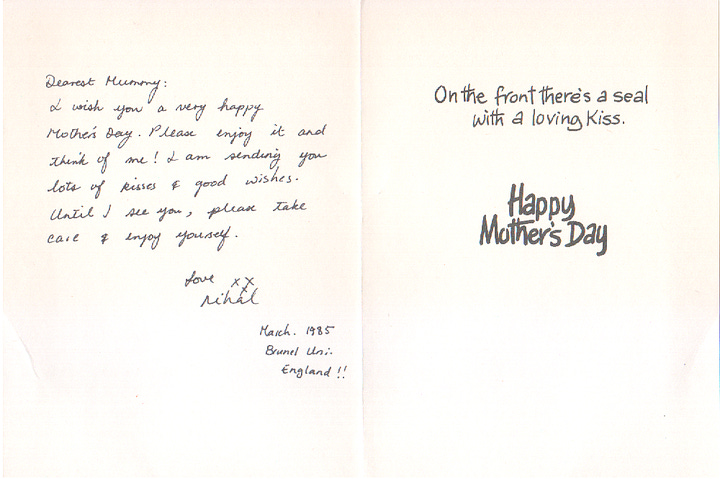 Dearest Mummy:
I wish you a very happy
Mother's Day. Please enjoy it and
think of me! I am sending you
lots of kisses & good wishes.
Until I see you, please take
care & enjoy yourself.
Love xx
x
Nihal
March. 1985
Brunel Uni.
England!!
On the front there's a seal
with a loving Kiss.
Happy
Mother's Day